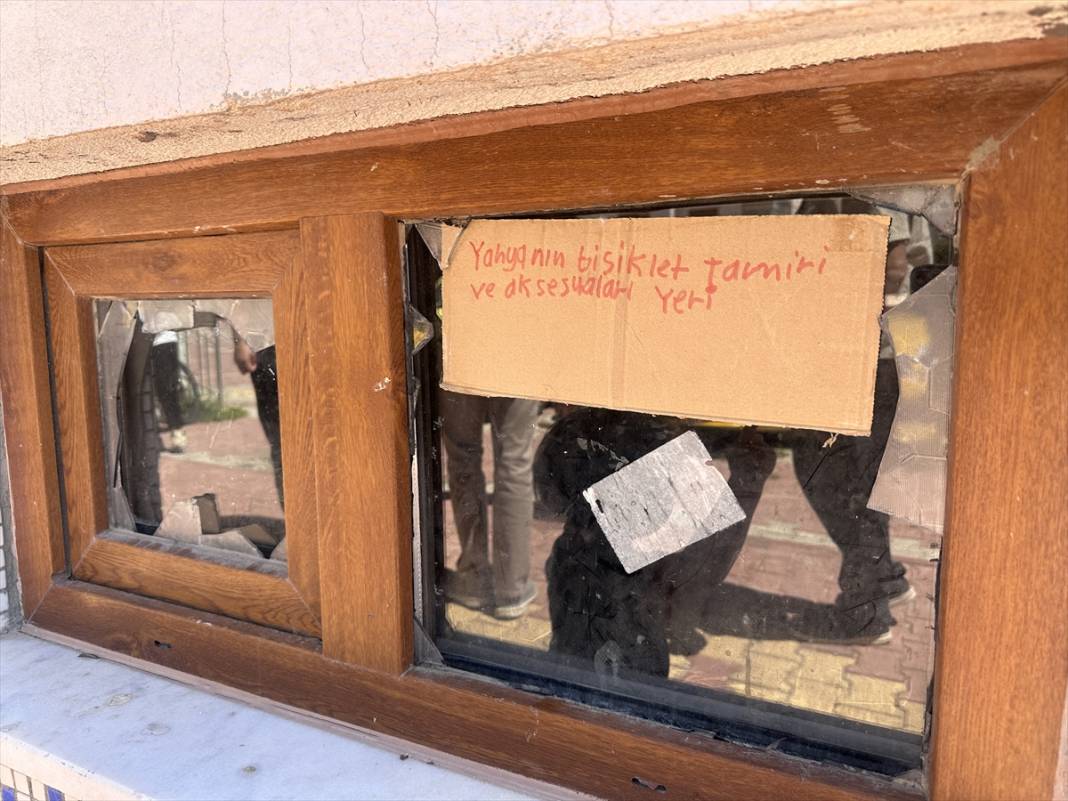 Yahyanın bisiklet tamiri
ve aksesuaları Yeri